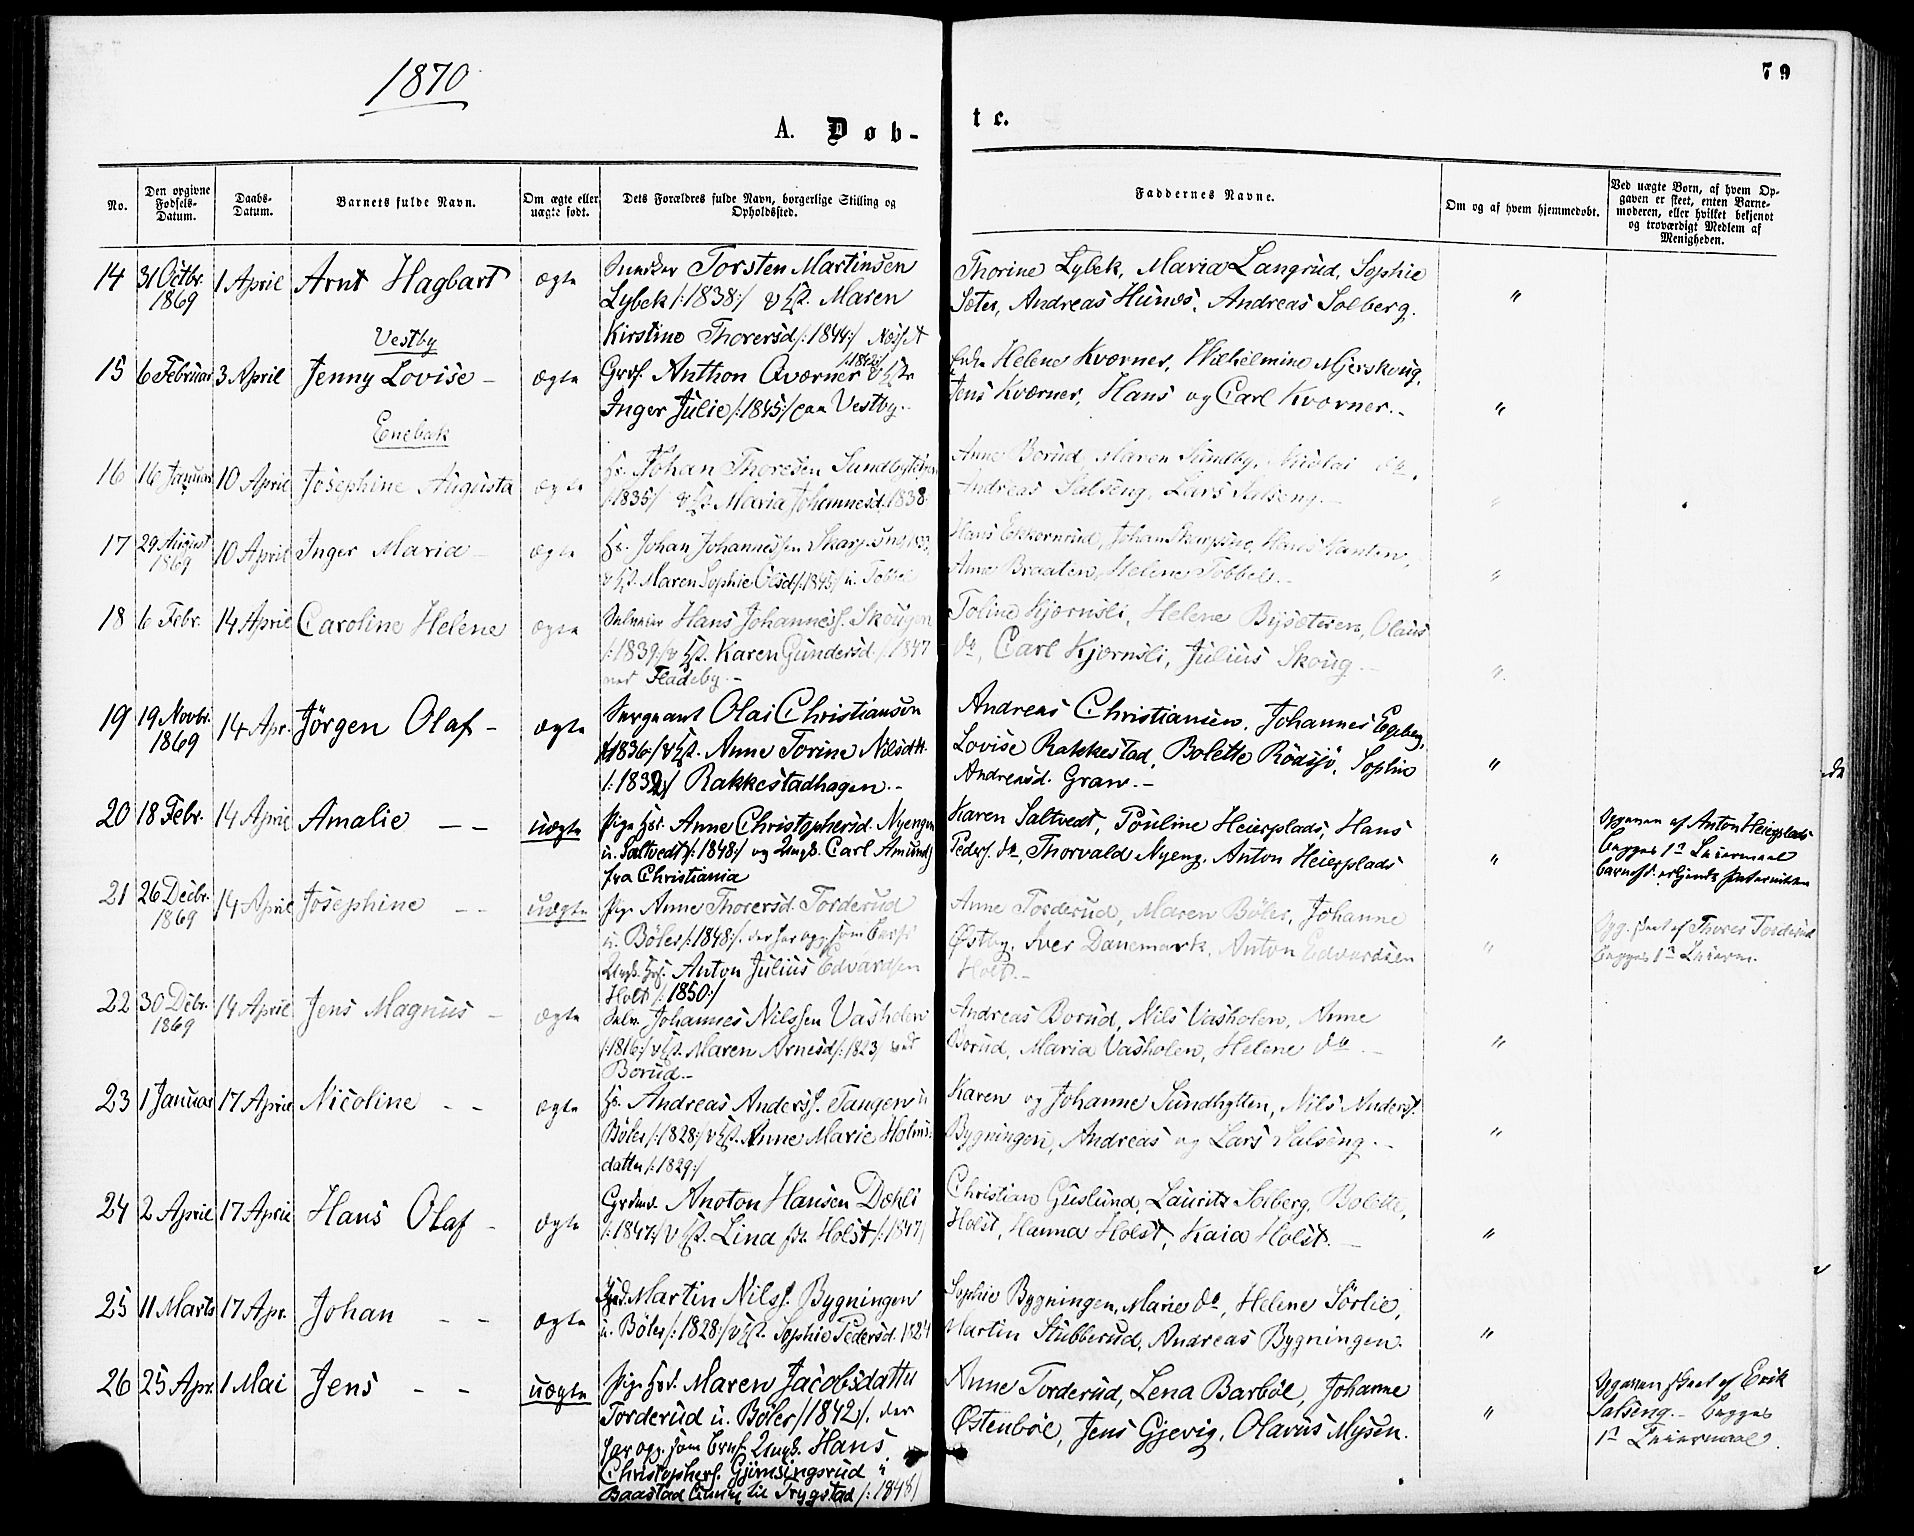 1870
79
A. Døb-
te.
No.
Den opgivne Fødsels-Datum.
Daabs-Datum.
Barnets fulde Navn.
Om ægte eller uægte født.
Dets Forældres fulde Navn, borgerlige Stilling og Opholdssted.
Faddernes Navne.
Om og af hvem hjemmedøbt.
Ved uægte Børn, af hvem Op-
gaven er skeet, enten Barne-
moderen, eller hvilket bekjendt
og troværdigt Medlem af
Menigheden.
14 31 Octbr. 1869 1 April Arnt Hagbart ægte
Torsten Martinsen
Lybek /:1838:/ Maren
Kirstine Thorersd /:1844:/
Thorine Lybek, Maria Langrud, Sophie
Sæter, Andreas Hunæs, Andreas Solberg.
"
Vestby
15 6 Februar 3 April Jenny Lovise - ægte
Anthon Qværner /:1842:/
Inger Julie /:1845:/ paa Vestby.
Helene Kværner, Wilhelmine Mjerskoug,
Jens Kværner, Hans og Carl Kværner.-
"
Enebak
16 16 Januar 10 April Josephine Augusta ægte
Johan Thoresen
/:1835/ Maria Johannesd. 1838
Anne Borud, Maren Sundby, Nicolai do,
Andreas Salseng, Lars Salseng.
"
17 29 August 1869 10 April Inger Maria - ægte
Johan Johannessen
Maren Sophie Olsd /:1845/ u. Tobbel
Hans Ekkernrud, Johan
Anne Braaten, Helene Tobbel.-
"
18 6 Febr. 14 April Caroline Helene ægte
Hans Johanness. Skougen
/:1839:/ Karen Gundersd /:1847
Fladeby.-
Toline Kjærnsli, Helene Bysæteren, Olaus
do, Carl Kjærnsli, Julius Skoug.-
"
19 19 Novbr. 1869 14 Apr. Jørgen Olaf - ægte
Sergeant Olai Christiansen
/:1836/ Anne Torine Nilsdtt.
/:1832/ Rakkestadhagen.-
Andreas Christiansen, Johannes Egeberg,
Lovise Rakkestad, Bolette Rödsjö, Sophie
Andreasd. Gran.-
"
20 18 Febr. 14 April Amalie - - uægte
Pige Anne Christophersd. Nyengen
u. Saltvedt /:1848:/ og Ungk. Carl Amunds
fra Christiania
Karen Saltvedt, Pouline Heierplads, Hans
Peders. do, Thorvald Nyeng, Anton Heierplads
"
Opgaven af Anton Heierplads
begges 1ste Leiermaal
21 26 Decbr. 1869 14 April Josephine - - uægte
Pige Anne Thorersd. Torderud
u. Bøler /:1848:/. der har opg. som
Ungk. Anton Julius Edvardsen
Holt /:1850:/
Anne Torderud, Maren Bøler, Johanne
Østby, Iver Danemark, Anton Edvardsen
Holt.-
"
Opg. skeet af Thorer Torderud
begges 1ste Leierm.
22 30 Decbr. 1869 14 April Jens Magnus - ægte
Selv. Johannes Nilssen Vasholen
/:1816:/ Maren Arnesd /:1823/ ved
Borud.-
Andreas Borud, Nils Vasholen, Anne
Borud, Maria Vasholen, Helene do.-
"
23 1 Januar 17 April Nicoline - - ægte
Andreas Anderss. Tangen u
Bøler /:1828:/ Anne Marie Holms-
datter /:1829:/
Karen og Johanne Sundhytten, Nils Anders.
Bygningen, Andreas og Lars Salseng.-
"
24 2 April 17 April Hans Olaf - ægte
Anoton Hansen Dæhli
/:1847:/ Lina Holst /:1847/
Christian Guslund, Lauritz Solberg, Bolette
Holst, Hanna Holst, Kaia Holst.-
"
25 11 Marts 17 Apr. Johan - - ægte
Martin Nilss. Bygningen
u. Bøler /:1828:/ Sophie Pedersd.
Sophie Bygningen, Marie do, Helene Sörlie,
Martin Stubberud, Andreas Bygningen.
"
26 25 Apr. 1 Mai Jens - - uægte
Pige Maren Jacobsdatter
Torderud u. Bøler /1842/. der
har opg. som Ungk. Hans
Christophers. Gjimsingsrud i
Baastad til Trygstad /:1848/
Anne Torderud, Lena Barbøl, Johanne
Østenbøl, Jens Gjevig, Olavus Mysen.
"
Opgaven skeet af Erik
Salseng.- begges
1ste Leiermaal.